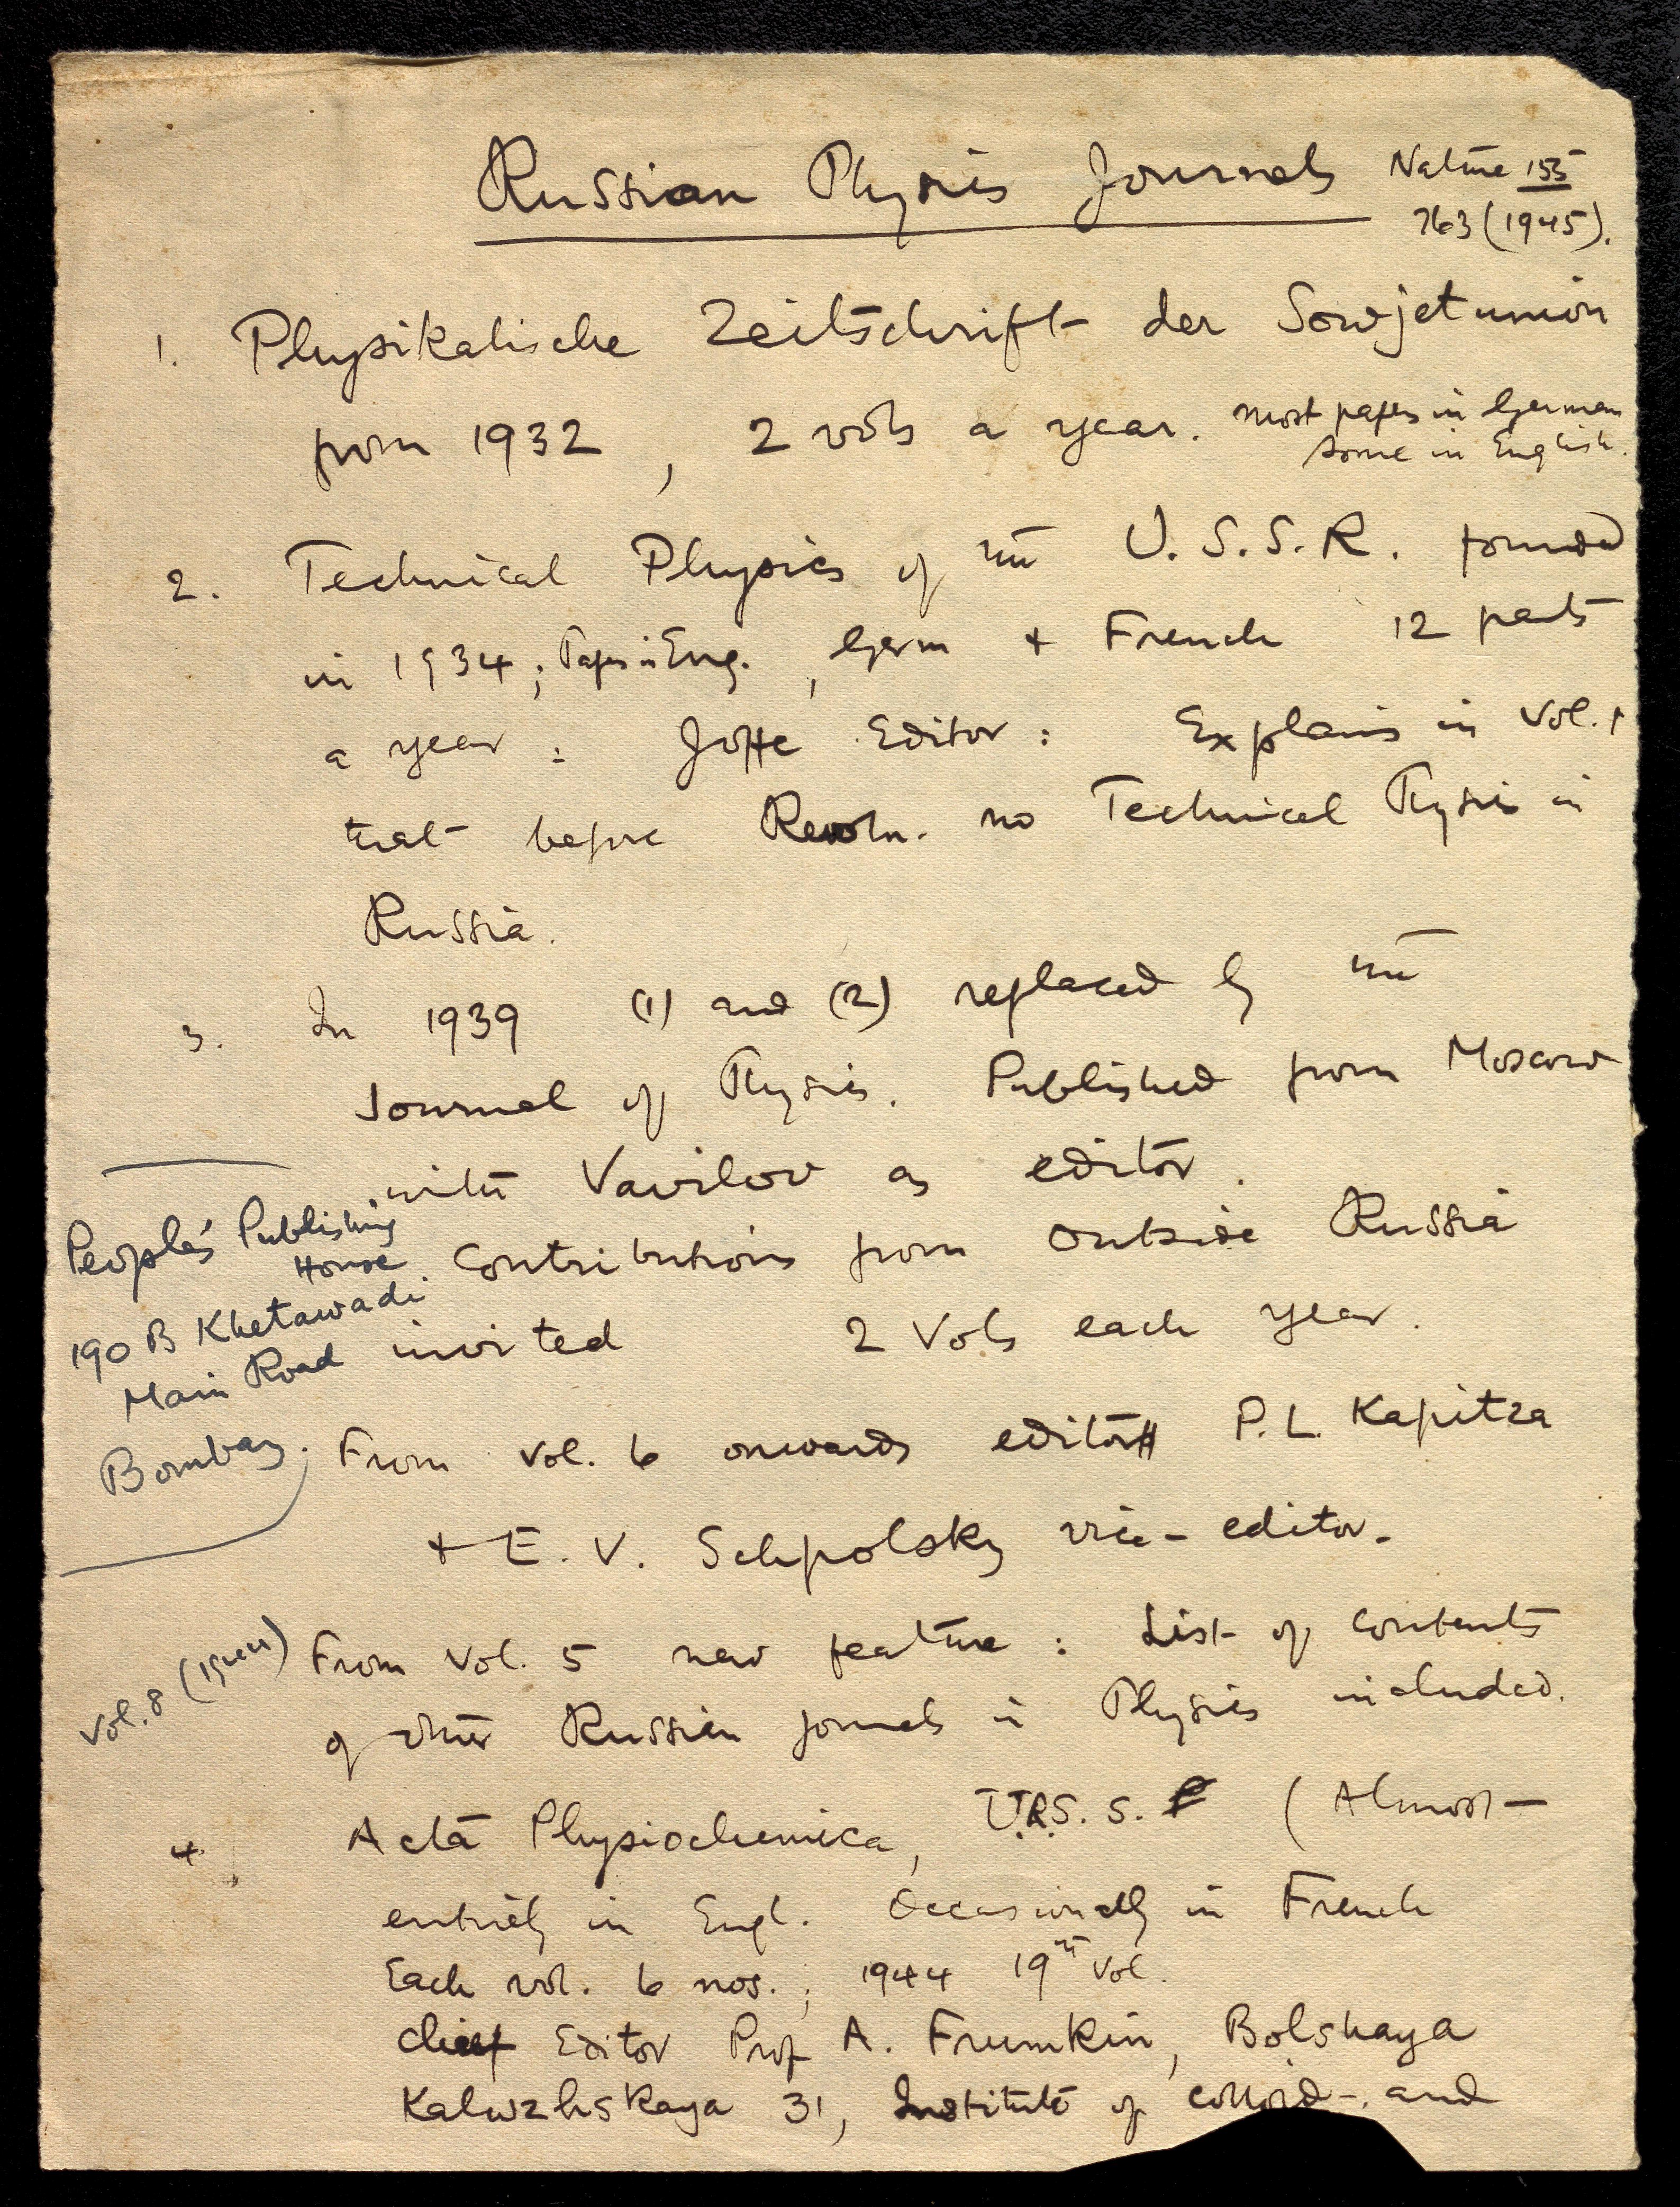 Russian Physics Journals
Nature 155
763 (1945).
1. Physikalische Zeitschrift der Sowjetunion
from 1932, 2 vols a year. most papers in German
some in English.
2. Technical Physics of the U.S.S.R. founded
in 1934; Papers in Eng., Germ + French 12 parts
a year : Joffe Editor : Explains in Vol. 1
that before Revoln. no Technical Physics in
Russia.
3. In 1939 (1) and (2) replaced by the
Journal of Physics. Published from Moscow
with Vavilov as editor.
Contributions from outside Russia
invited 2 Vols each year.
People's Publishing
House
190 B Khetawadi
Main Road
Bombay.
From Vol. 6 onwards editor P.L. Kapitza
+ E. V. Schpolsky vice-editor.
Vol. 8 (1944)
From Vol. 5 new feature : List of contents
of other Russian journals in Physics included.
4. Acta Physiochemica, U.R.S.S. (Almost
entirely in Engl. Occasionally in French
Each vol. 6 nos.; 1944 19th Vol.
Chief Editor Prof A. Frumkin, Bolshaya
Kaluzhskaya 31, Institute of colloid- and